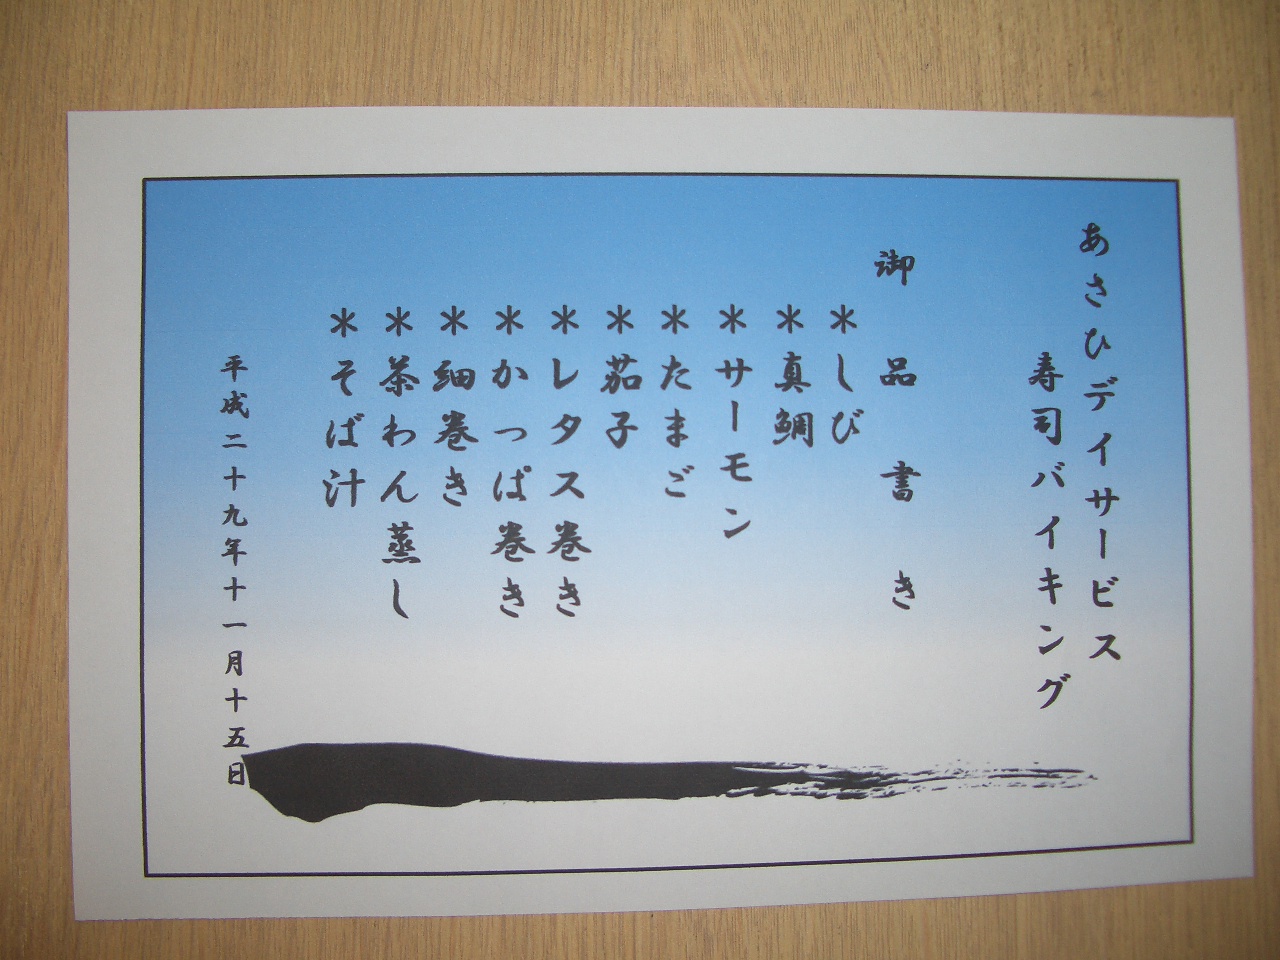 あさひデイサービス
寿司バイキング
御品書き
＊しび
＊真鯛
＊サーモン
＊たまご
＊茄子
＊レタス巻き
＊かっぱ巻き
＊細巻き
＊茶わん蒸し
＊そば汁
平成二十九年十一月十五日